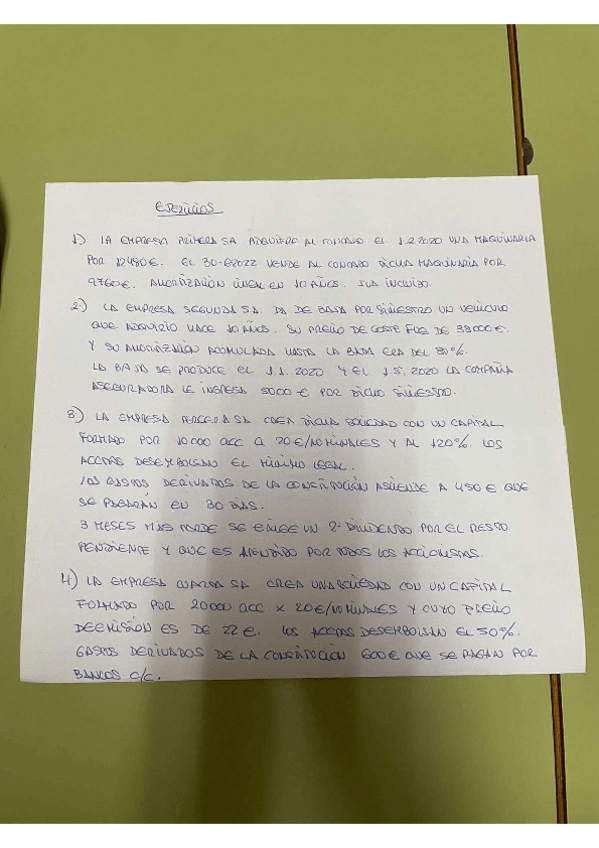 EJERCICIOS
1) LA EMPRESA PRIMERA SA ADQUIERE AL CONTADO EL 1.2.2020 UNA MAQUINARIA
POR 12480€. EL 30-6-2022 VENDE AL CONTADO DICHA MAQUINARIA POR
9760€. AMORTIZACIÓN LINEAL EN 10 AÑOS. IVA INCLUIDO.
2.) LA EMPRESA SEGUNDA SA. DA DE BAJA POR SINIESTRO UN VEHÍCULO
QUE ADQUIRIO HACE 10 AÑOS. SU PRECIO DE COSTE FUE DE 38000€.
Y SU AMORTIZACIÓN ACUMULADA HASTA LA BAJA ERA DEL 80%.
LA BAJA SE PRODUCE EL 1.1.2020 Y EL 1.5.2020 LA COMPAÑIA
ASEGURADORA LE INGRESA 5000€ POR DICHO SINIESTRO.
3) LA EMPRESA TERCERA SA CREA DICHA SOCIEDAD CON UN CAPITAL
FORMADO POR 10000 ACC A 20€/NOMINALES Y AL 120%. LOS
ACCTAS DESEMBOLSAN EL MÍNIMO LEGAL.
LOS GASTOS DERIVADOS DE LA CONSTITUCIÓN ASCIENDE A 450€ QUE
SE PAGARÁN EN 30 DIAS.
3 MESES MAS TARDE SE EXIGE UN 2º DIVIDENDO POR EL RESTO
PENDIENTE Y QUE ES ATENDIDO POR TODOS LOS ACCIONISTAS.
4) LA EMPRESA CUARTA SA CREA UNA SOCIEDAD CON UN CAPITAL
FORMADO POR 20000 ACC x 20€/NOMINALES Y CUYO PRECIO
DE EMISIÓN ES DE 22€. LOS ACCTAS DESEMBOLSAN EL 50%.
GASTOS DERIVADOS DE LA CONSTITUCIÓN 600€ QUE SE PAGAN POR
BANCOS C/C.